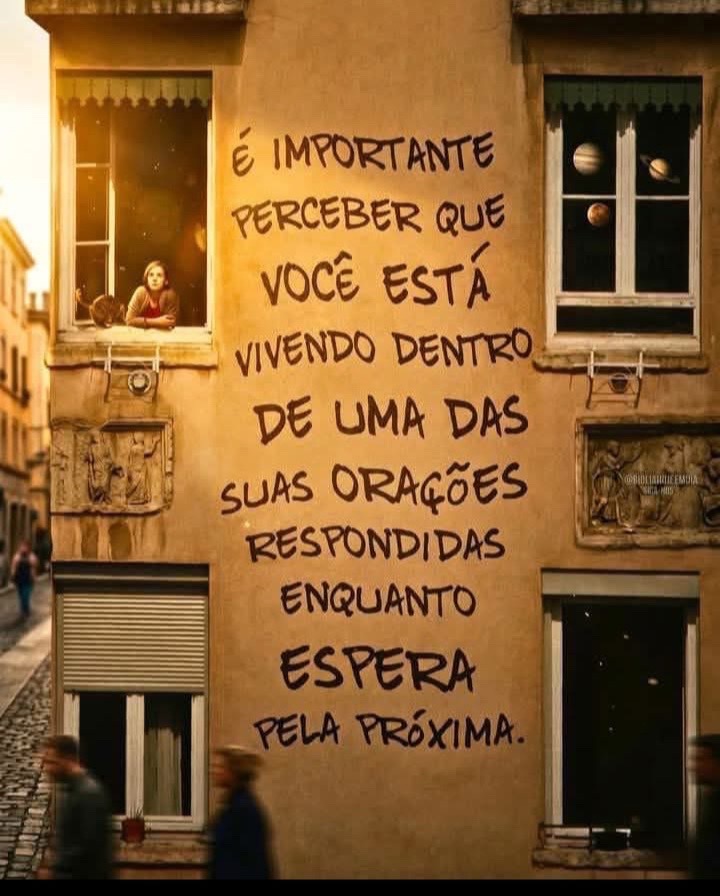 É IMPORTANTE
PERCEBER QUE
VOCÊ ESTÁ
VIVENDO DENTRO
DE UMA DAS
SUAS ORAÇÕES
RESPONDIDAS
ENQUANTO
ESPERA
PELA PRÓXIMA.